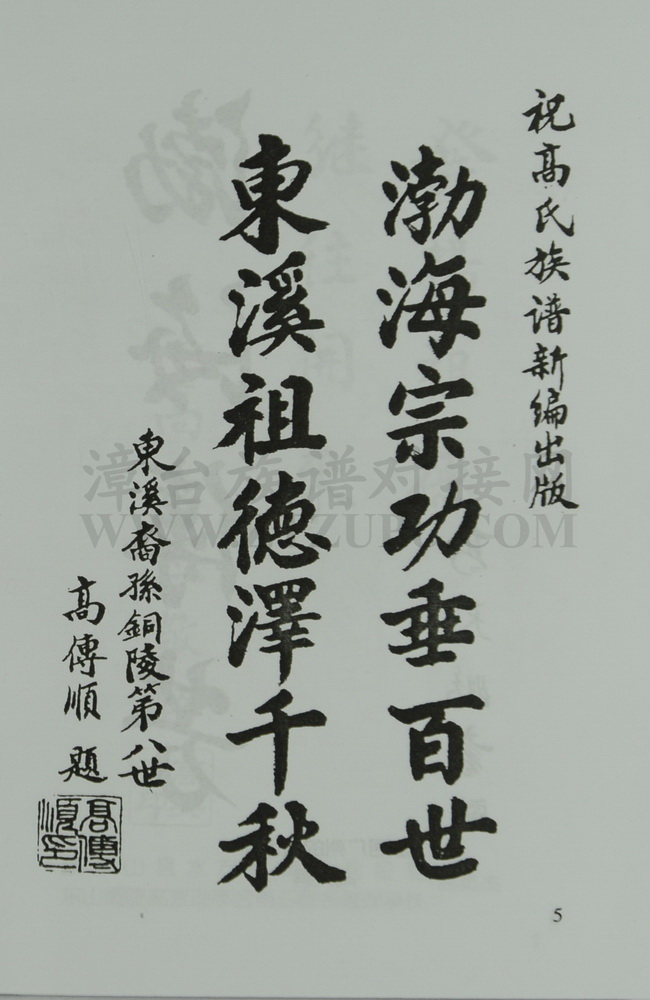 祝高氏族谱新编出版
渤海宗功垂百世
東溪祖德澤千秋
東溪裔孫銅陵第八世
高傳順 題
高傳順印
漳台族谱对接网
5